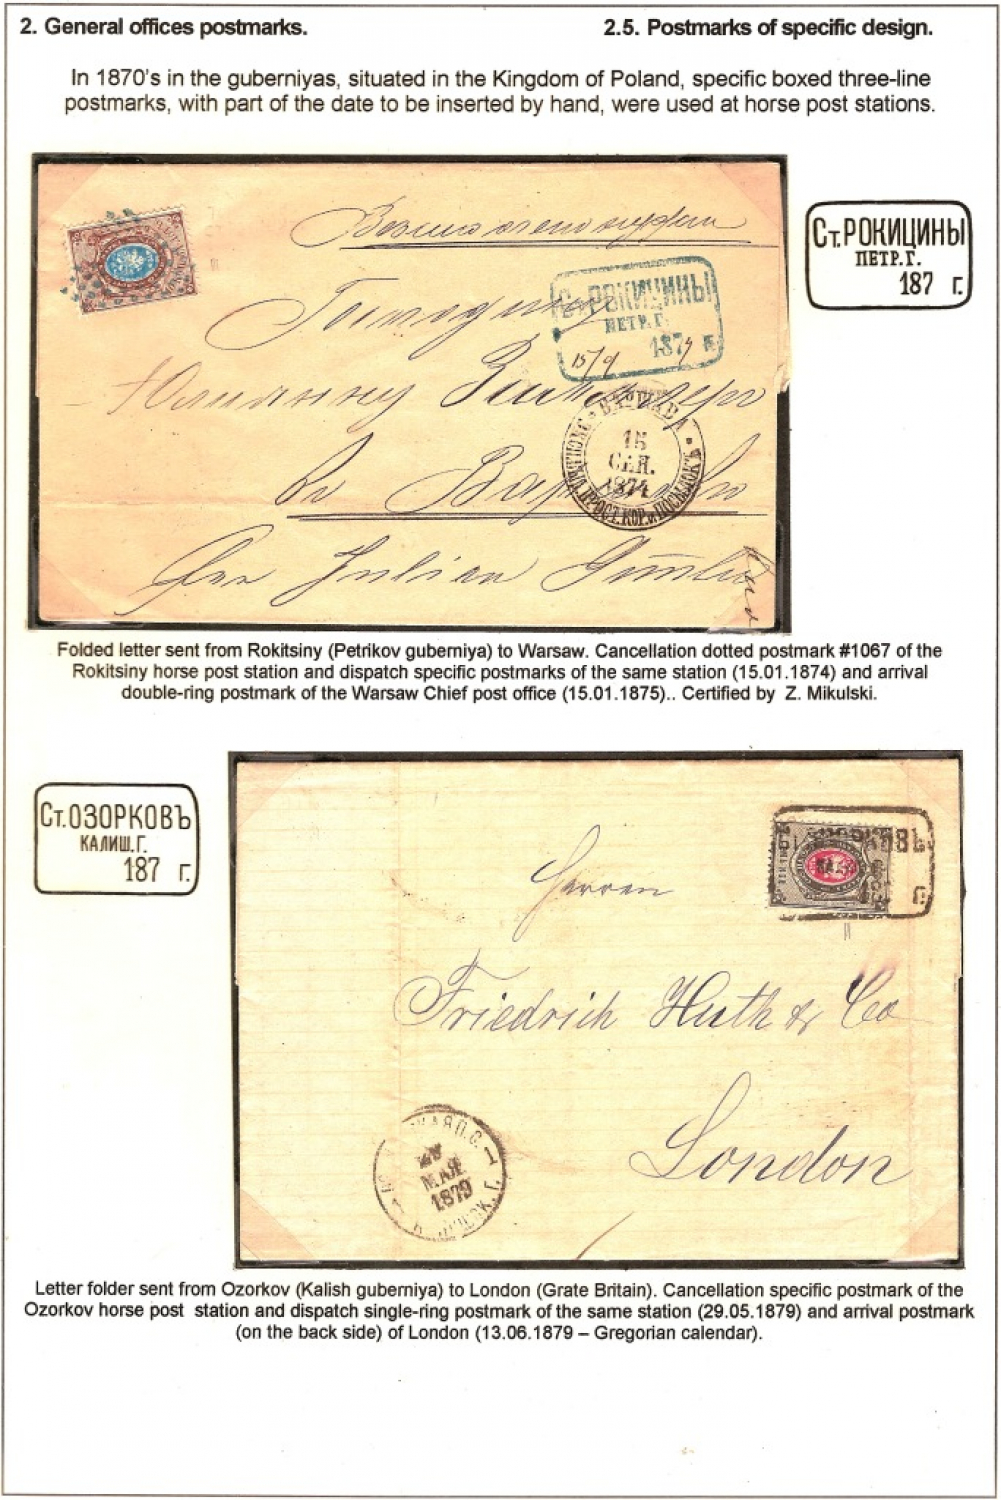 2. General offices postmarks. 2.5. Postmarks of specific design.
In 1870's in the guberniyas, situated in the Kingdom of Poland, specific boxed three-line
postmarks, with part of the date to be inserted by hand, were used at horse post stations.
Ст.РОКИЦИНЫ
ПЕТР.Г.
187 г.
Господину
Ст.РОКИЦИНЫ
ПЕТР.Г.
15/9 1874 г.
Юлианну
ВАРШАВА
15
СЕН.
1874
ЭКСПЕД. ПРОСТ. КОР. и ПОСЫЛОКЪ
Въ
Julian
Folded letter sent from Rokitsiny (Petrikov guberniya) to Warsaw. Cancellation dotted postmark #1067 of the
Rokitsiny horse post station and dispatch specific postmarks of the same station (15.01.1874) and arrival
double-ring postmark of the Warsaw Chief post office (15.01.1875).. Certified by Z. Mikulski.
Ст.ОЗОРКОВЪ
КАЛИШ.Г.
187 г.
Herren
Friedrich Huth & Co
London
МАЯ
1879
Letter folder sent from Ozorkov (Kalish guberniya) to London (Grate Britain). Cancellation specific postmark of the
Ozorkov horse post station and dispatch single-ring postmark of the same station (29.05.1879) and arrival postmark
(on the back side) of London (13.06.1879 – Gregorian calendar).